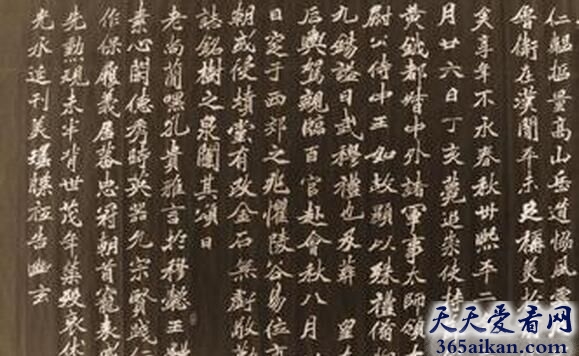 量高山岳道協風
魯衛在漢閒平未足
矣享年不永春秋卅熙平二
月廿六日丁亥薨追崇使持
黃鉞都督中外諸軍事太師領太
尉公侍中王如故顯以殊禮備物
九錫諡曰武穆禮也及葬 皇
后輿駕親臨百官赴會秋八月
日窆于西郊之兆懼陵谷易位市
朝或侵墳塋有改金石無虧敢勒
誌銘樹之泉闥其頌曰
老尚簡嘿孔貴雅言於穆懿王
素心閑德秀時英器允宗賢踐
作保履義居蕃忠冠朝首寵表
先勳現未半背世茂年葬殊哀
光永追刊美瓊牒 告幽玄
天天爱看网
365aikan.com